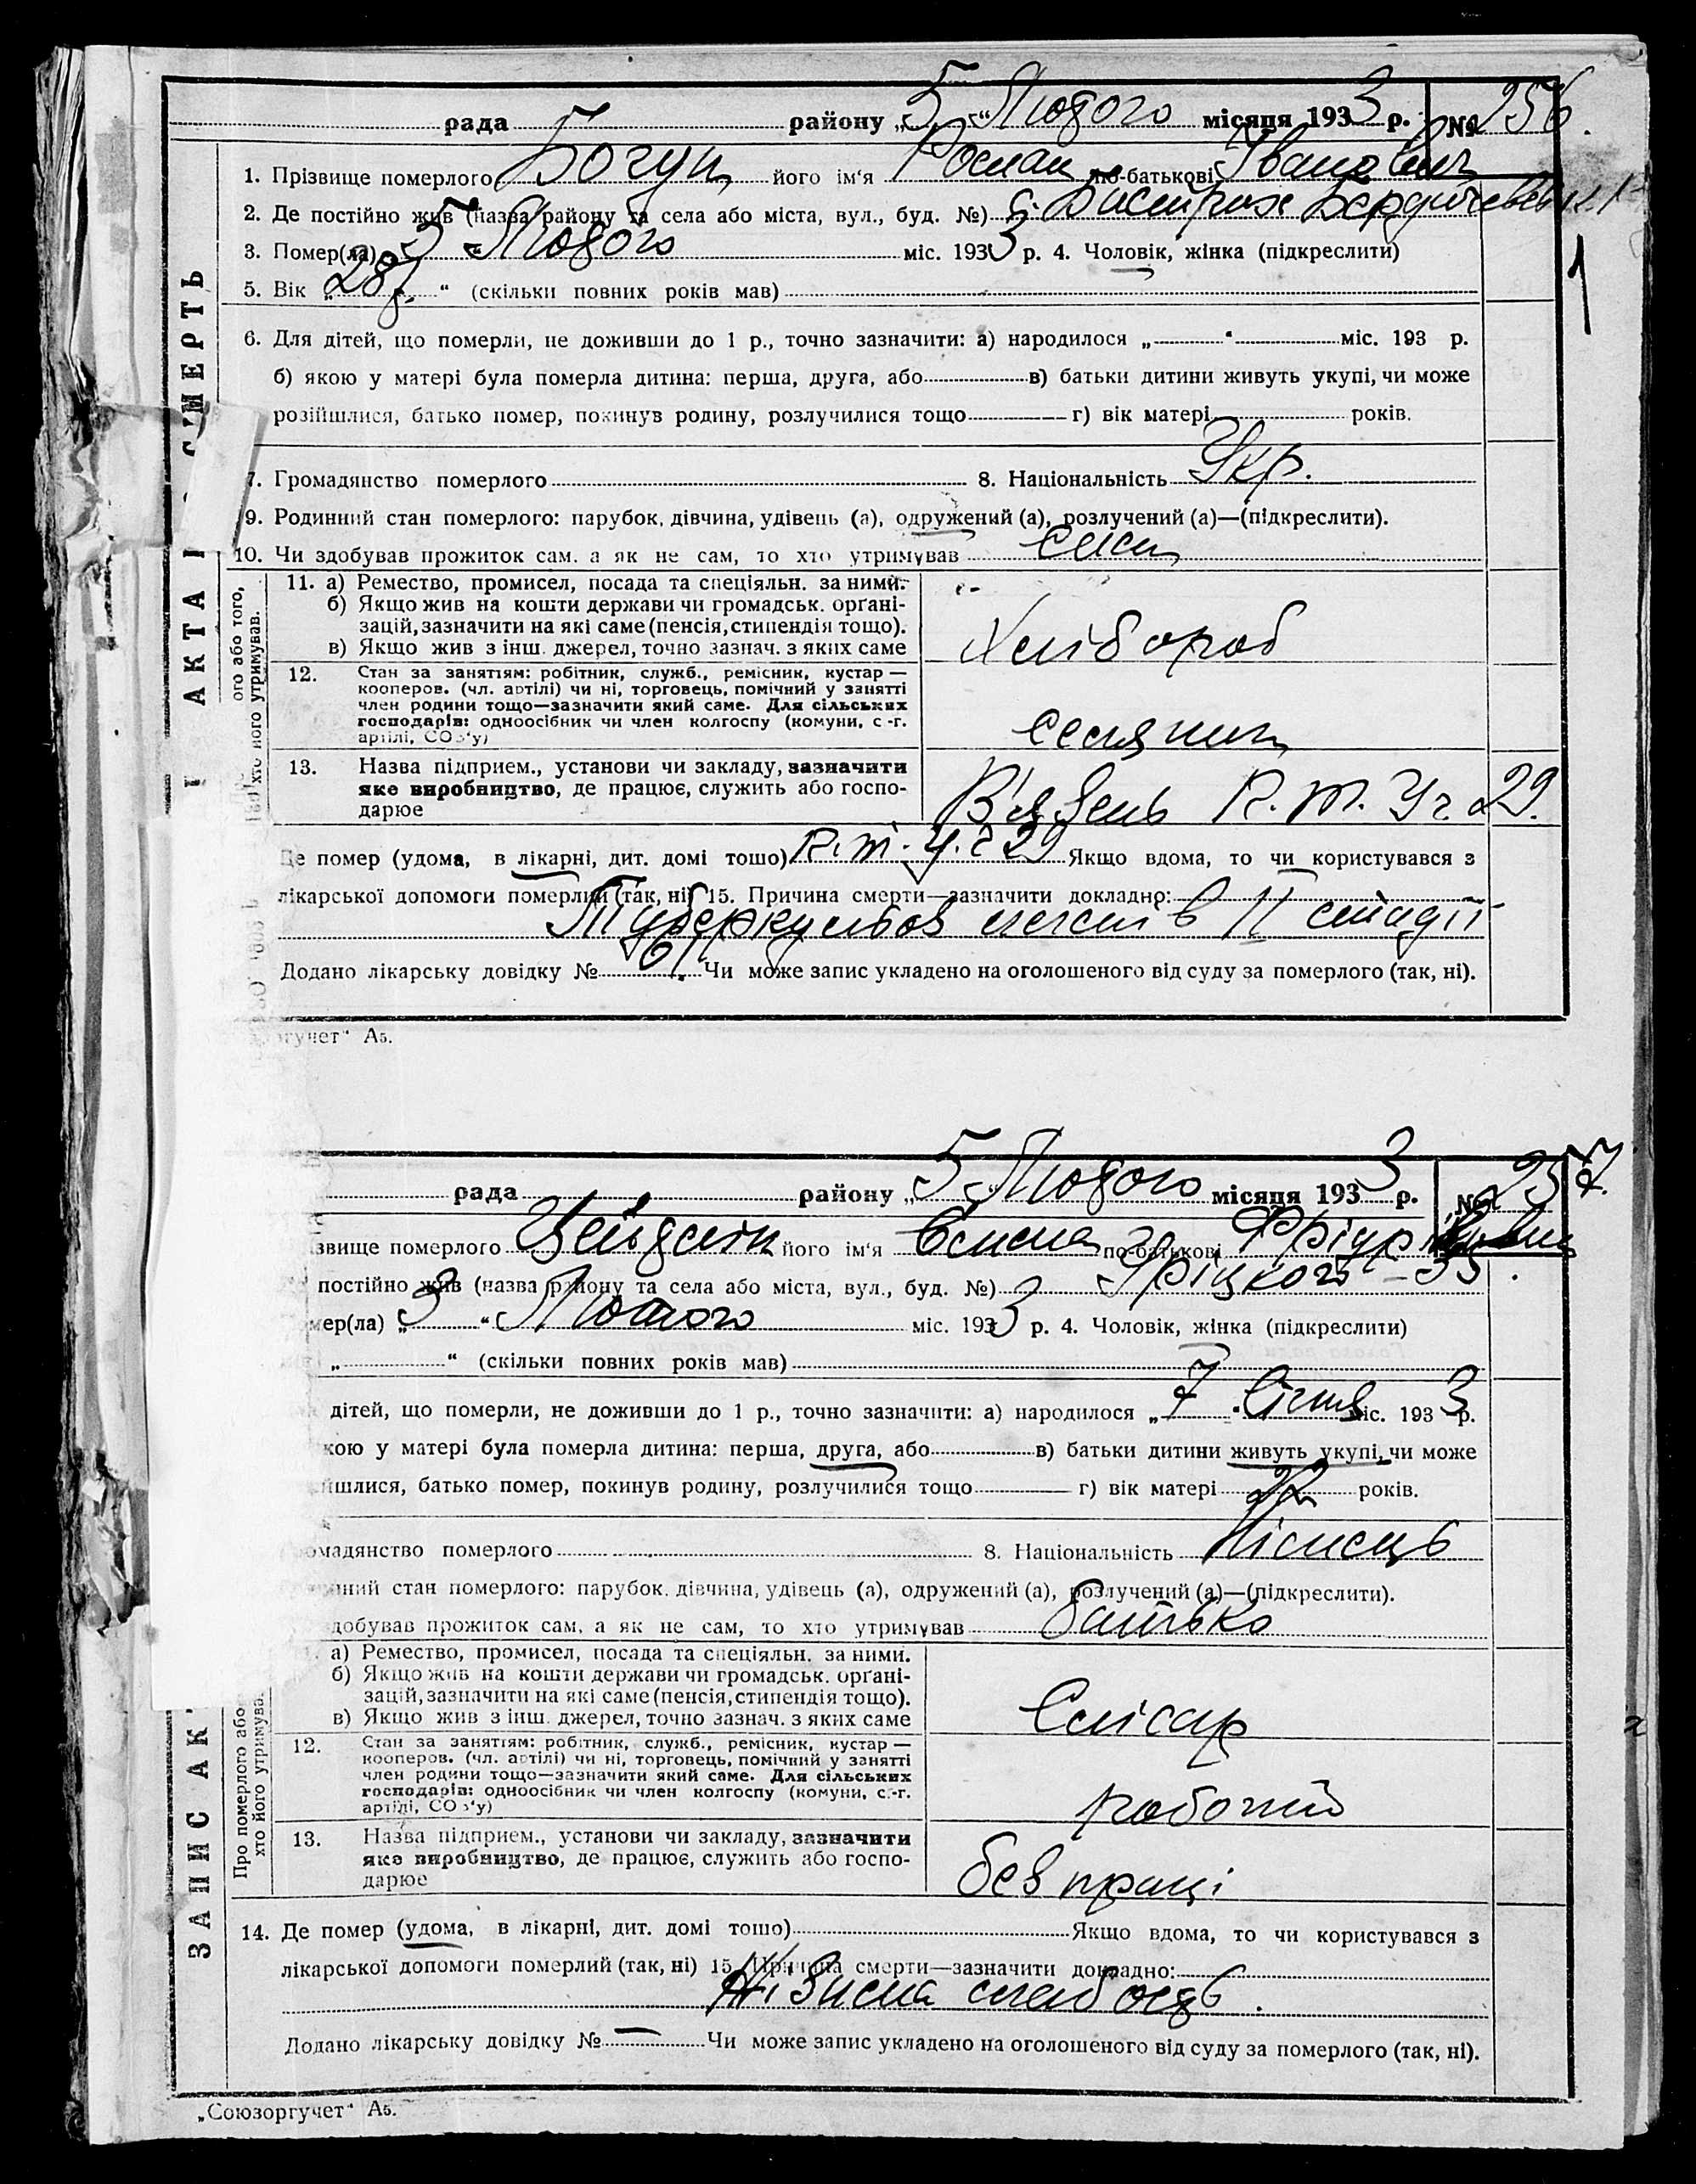 рада района „5“ Лютого місяця 1933 р. № 256.
1. Прізвище померлого Богун його ім'я Роман по-батькові Іванович
2. Де постійно жив (назва району та села або міста, вул., буд. №) с.
3. Помер(ла) „3“ Лютого міс. 1933 р. 4. Чоловік, жінка (підкреслити)
5. Вік „28 р.“ (скільки повних років мав)
1
6. Для дітей, що померли, не доживши до 1 р., точно зазначити: а) народилося „ “ міс. 193 р.
б) якою у матері була померла дитина: перша, друга, або в) батьки дитини живуть укупі, чи може
розійшлися, батько помер, покинув родину, розлучилися тощо г) вік матері років.
7. Громадянство померлого 8. Національність Укр.
9. Родинний стан померлого: парубок, дівчина, удівець (а), одружений (а), розлучений (а)—(підкреслити).
10. Чи здобував прожиток сам, а як не сам, то хто утримував сам
11. а) Ремество, промисел, посада та спеціяльн. за ними.
б) Якщо жив на кошти держави чи громадськ. орґані-
зацій, зазначити на які саме (пенсія, стипендія тощо).
в) Якщо жив з інш. джерел, точно зазнач. з яких саме
Хлібороб
12. Стан за заняттям: робітник, служб., ремісник, кустар —
кооперов. (чл. артілі) чи ні, торговець, помічний у занятті
член родини тощо—зазначити який саме. Для сільських
господарів: одноосібник чи член колгоспу (комуни, с.-г.
артілі, СОЗ'у)
селянин
13. Назва підприєм., установи чи закладу, зазначити
яке виробництво, де працює, служить або госпо-
дарює
В'язень 29.
Де помер (удома, в лікарні, дит. домі тощо) 29 Якщо вдома, то чи користувався з
лікарської допомоги померлий (так, ні) 15. Причина смерти—зазначити докладно:
Туберкульоз легень в II стадії
Додано лікарську довідку № 61 Чи може запис укладено на оголошеного від суду за померлого (так, ні).
ргучет“ А5.
АКТА СМЕРТЬ
рада района „5“ Лютого місяця 1933 р. № 257.
звище померлого його ім'я по-батькові
постійно жив (назва району та села або міста, вул., буд. №) Уріцкого - 35.
мер(ла) „3“ Лютого міс. 1933 р. 4. Чоловік, жінка (підкреслити)
„ “ (скільки повних років мав)
дітей, що померли, не доживши до 1 р., точно зазначити: а) народилося „7“ Січня міс. 1933 р.
кою у матері була померла дитина: перша, друга, або в) батьки дитини живуть укупі, чи може
йшлися, батько помер, покинув родину, розлучилися тощо г) вік матері 22 років.
омадянство померлого 8. Національність Німець
нний стан померлого: парубок, дівчина, удівець (а), одружений (а), розлучений (а)—(підкреслити).
добував прожиток сам, а як не сам, то хто утримував батько
а) Ремество, промисел, посада та спеціяльн. за ними.
б) Якщо жив на кошти держави чи громадськ. орґані-
зацій, зазначити на які саме (пенсія, стипендія тощо).
в) Якщо жив з інш. джерел, точно зазнач. з яких саме
Слісар
12. Стан за заняттям: робітник, служб., ремісник, кустар —
кооперов. (чл. артілі) чи ні, торговець, помічний у занятті
член родини тощо—зазначити який саме. Для сільських
господарів: одноосібник чи член колгоспу (комуни, с.-г.
артілі, СОЗ'у)
робочий
13. Назва підприєм., установи чи закладу, зазначити
яке виробництво, де працює, служить або госпо-
дарює
без праці
14. Де помер (удома, в лікарні, дит. домі тощо) Якщо вдома, то чи користувався з
лікарської допомоги померлий (так, ні) 15. Причина смерти—зазначити докладно:
Фізична слабость.
Додано лікарську довідку № — Чи може запис укладено на оголошеного від суду за померлого (так, ні).
„Союзоргучет“ А5.
ЗАПИС АК
Про померлого або
хто його утримував.